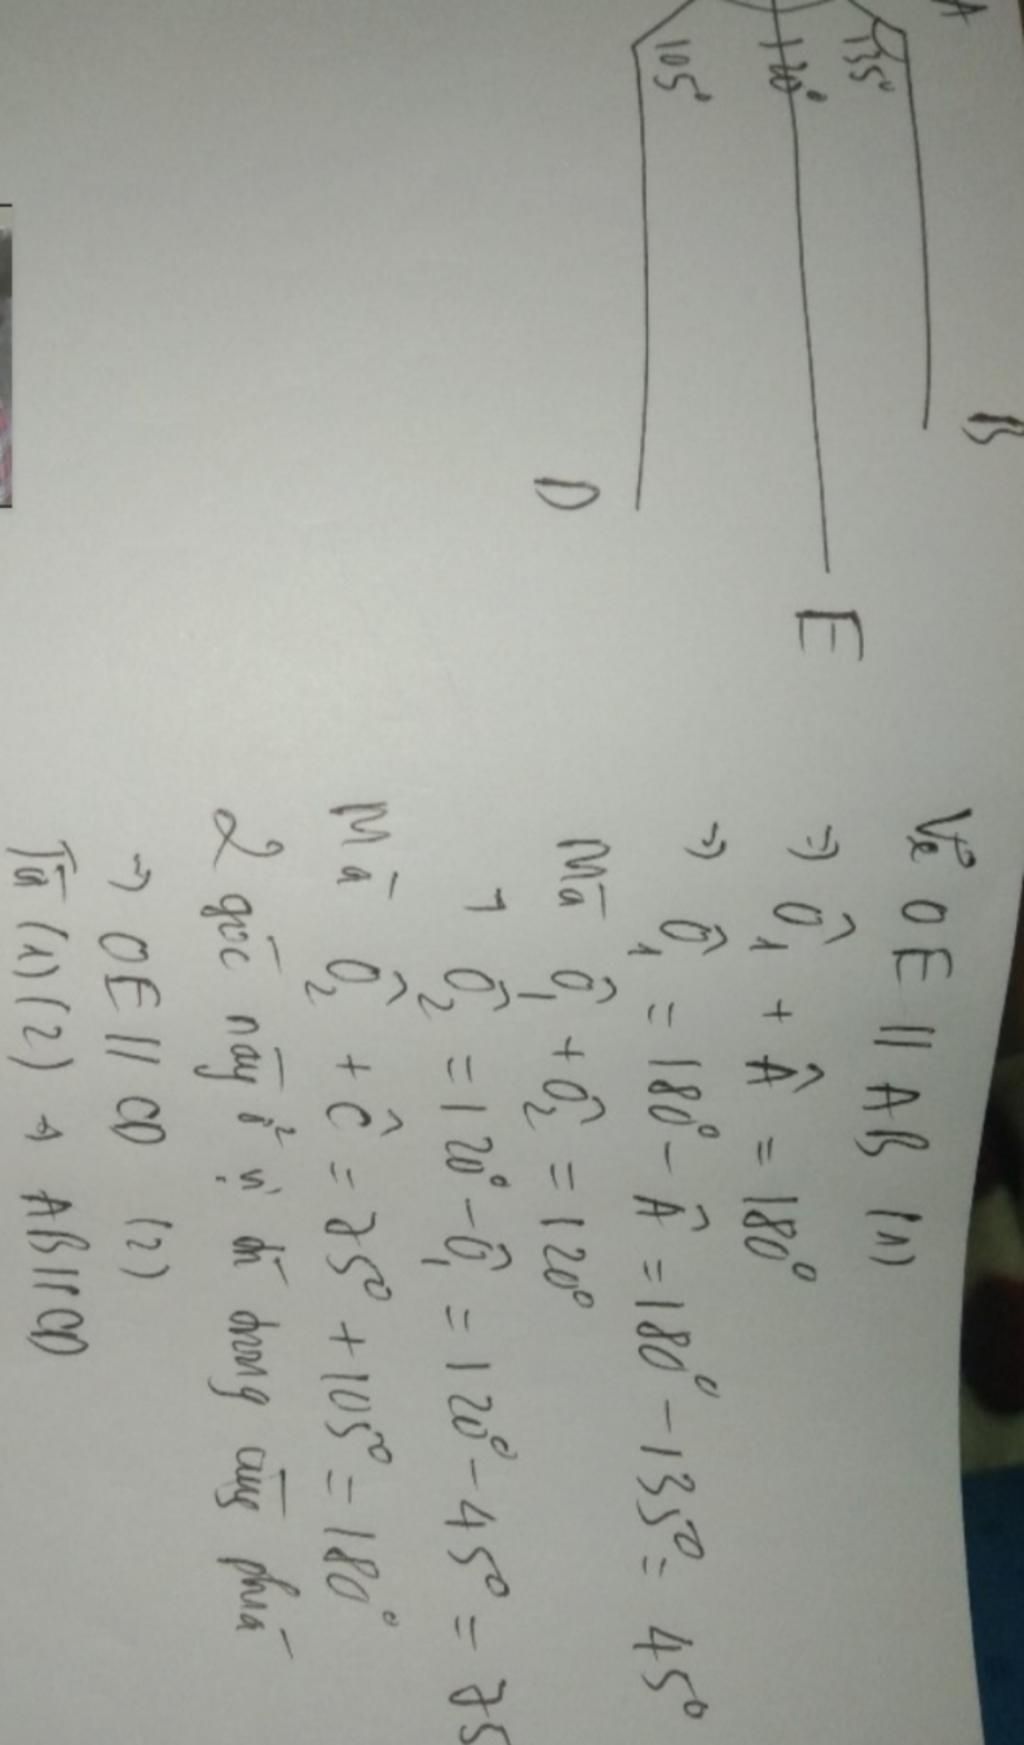 A
B
135°
120°
105°
E
D
Vẽ OE || AB (1)
=> Ô1 + Â = 180°
=> Ô1 = 180° - Â = 180° - 135° = 45°
Mà Ô1 + Ô2 = 120°
Ô2 = 120° - Ô1 = 120° - 45° = 75
Mà Ô2 + Ĉ = 75° + 105° = 180°
2 góc này ở vị trí trong cùng phía
=> OE || CD (2)
Từ (1) (2) => AB || CD